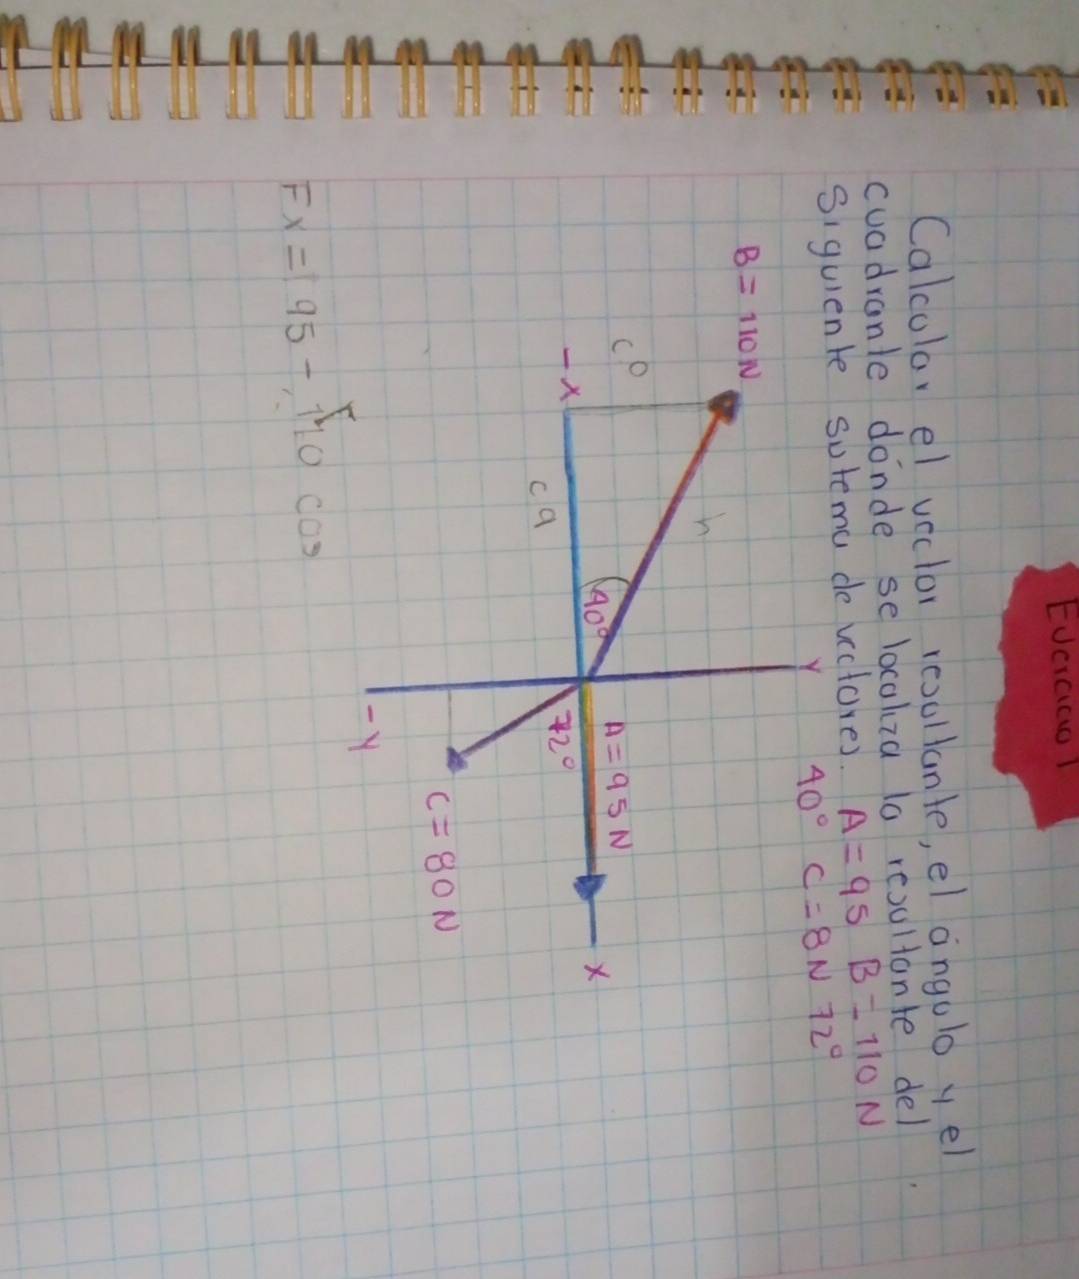 Ejercicio 1
Calcular el vector resultante, el ángulo y el
cuadrante dónde se localiza la resultante del
siguiente sistema de vectores. A=95 B=110 N
40° C=8N 72°
B=110N
Y
co
h
40°
A=95N
-x
x
ca
72°
C=80N
-Y
Fx= 95- 110 cos